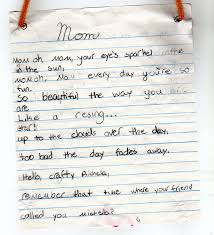 Mom
Mom oh, mom, your eye's sparkel the
in the sun,
mom oh, mom every day you're so
fun.
So beautiful the way you
are
Like a resing...
star!
up to the clouds over the day,
too bad the day fades away.
Hello, crafty Michela,
remember that time where your friend
called you michela?